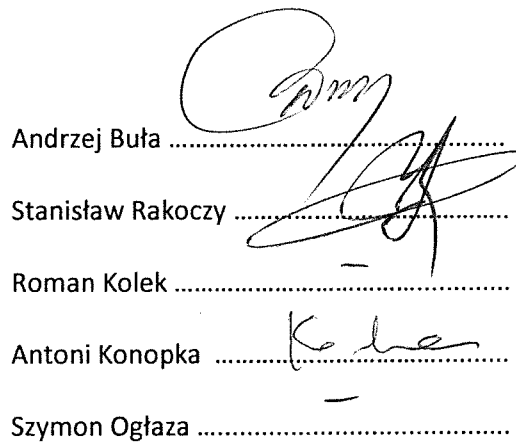 Andrzej Buła ..............................................
Stanisław Rakoczy ......................................
Roman Kolek ..............................................
Antoni Konopka .........................................
Szymon Ogłaza ...........................................